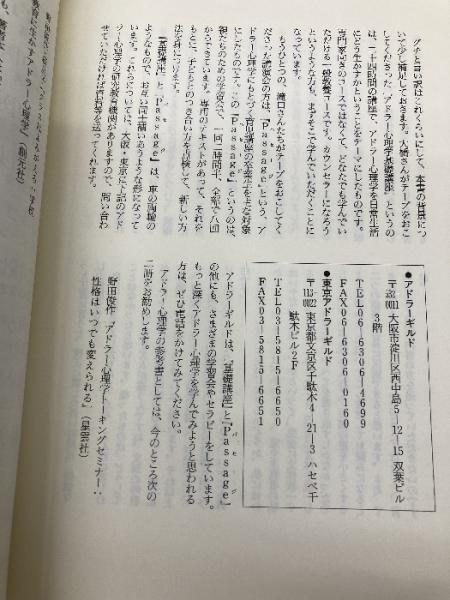 グチと言い訳はこれくらいにして、本書の背景につ
いて少し補足しておきます。大橋さんがテープをおこ
してくださった「アドラー心理学基礎講座」というの
は、二十四時間の講座で、アドラー心理学を日常生活
にどう生かすかということをテーマにしたものです。
専門家向きのコースではなくて、どなたでも学んでい
ただける一般教養コースです。カウンセラーになろう
というような方も、まずそこで学んでいただくことに
なっています。
もうひとつの、滝口さんたちがテープをおこしてく
ださった講演会の方は、「Passage」という、ア
ドラー心理学にもとづく育児講座の卒業生をおもな対象
にしたものです。この「Passage」というのは、
親たちのための学習会で、一回二時間半、全部で八回
からできています。専用のテキストがあって、それを
もとに、子どもとのつき合い方を点検して、新しい方
法を身につけます。
「基礎講座」と「Passage」は、車の両輪の
ようなもので、お互い同士補いあうような形になって
います。これらについては、大阪・東京に下記のアド
ラー心理学の研究教育機関がありますので、問い合わ
せていただければ資料等を送ってくれます。
●アドラーギルド
〒532-0011 大阪市淀川区西中島5-12-15 双葉ビル
3階
TEL06-6306-4699
FAX06-6306-0160
●東京アドラーギルド
〒113-0022 東京都文京区千駄木4-21-3 ハセベ千
駄木ビル2F
TEL03-5815-6650
FAX03-5815-6651
アドラーギルドは、「基礎講座」と「Passage」
の他にも、さまざまの学習会やセラピーをしています。
もっと深くアドラー心理学を学んでみようと思われる
方は、ぜひ電話をかけてみてください。
アドラー心理学の参考書としては、今のところ次の
二冊をお勧めします。
野田俊作『アドラー心理学トーキングセミナー：
性格はいつでも変えられる』（星雲社）